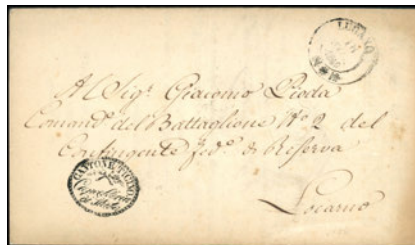 LUGANO
Al Sigr. Giacomo Pioda
Comandte. del Battaglione No. 2 del
Contingente fedo. di Riserva
CANTONE TICINO
Locarno